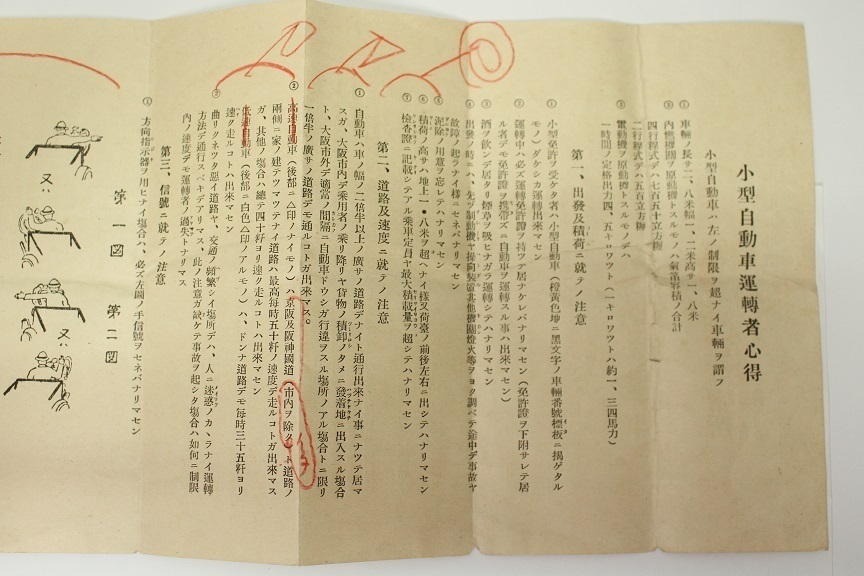 小型自動車運轉者心得
小型自動車ハ左ノ制限ヲ超ナイ車輛ヲ謂フ
① 車輛ノ長サ二、八米幅一、二米高サ一、八米
② 內燃機關ヲ原動機トスルモノハ氣筩容積ノ合計
四行程式デハ七百五十立方糎
二行程式デハ五百立方糎
③ 電動機ヲ原動機トスルモノデハ
一時間ノ定格出力四、五キロワツト（一キロワツトハ約一、三四馬力）
第一、出發及積荷ニ就テノ注意
① 小型免許ヲ受ケタ者ハ小型自動車（橙黃色地ニ黑文字ノ車輛番號標板ニ揭ゲタル
モノ）ダケシカ運轉出來マセン
② 運轉中ハ必ズ運轉免許證ヲ持ツテ居ナケレバナリマセン（免許證ヲ下附サレテ居
ル者デモ免許證ヲ携帶ズニ自動車ヲ運轉スル事ハ出來マセン）
③ 酒ヲ飮ンデ居タリ煙草ヲ吸ヒナガラ運轉シテハナリマセン
④ 出發ノ時ニハ、先ヅ制動機ヤ操向裝置其他機關燈火等ヲヨク調ベテ途中デ事故ヤ
故障ノ起ラナイ樣ニセネバナリマセン
⑤ 泥除ノ用意ヲ忘レテハナリマセン
⑥ 積荷ノ高サハ地上一・八米ヲ超ヘナイ樣又荷臺ノ前後左右ニ出シテハナリマセン
⑦ 檢查證ニ記載シテアル乘車定員ヤ最大積載量ヲ超シテハナリマセン
第二、道路及速度ニ就テノ注意
① 自動車ハ車ノ幅ノ二倍半以上ノ廣サノ道路デナイト通行出來ナイ事ニナツテ居マ
スガ、大阪市內デ乘用者ノ乘リ降リヤ貨物ノ積卸ノタメニ發着地ニ出入スル場合
ト、大阪市外デ適當ノ間隔ニ自動車ドウシガ行違ヲスル場所ノアル場合トニ限リ
一倍半ノ廣サノ道路デモ通ルコトガ出來マス。
② 高速自動車（後部ニ△印ノナイモノ）ハ京阪及阪神國道 市內ヲ除クト道路ノ
兩側ニ家ノ建テツマツテナイ道路ハ最高每時五十粁ノ速度デ走ルコトガ出來マス
ガ、其他ノ場合ハ總テ四十粁ヨリ速ク走ルコトハ出來マセン
低速自動車（後部ニ白色△印ノアルモノ）ハ、ドンナ道路デモ每時三十五粁ヨリ
速ク走ルコトハ出來マセン
② 曲リクネツタ惡イ道路ヤ、交通ノ頻繁シイ場所デハ、人ニ迷惑ノカヽラナイ運轉
方法デ通行スベキデアリマス、此ノ注意ガ缺ケテ事故ヲ起シタ場合ハ如何ニ制限
內ノ速度デモ運轉者ノ過失トナリマス
第三、信號ニ就テノ注意
① 方向指示器ヲ用ヒナイ場合ハ、必ズ左圖ノ手信號ヲセネバナリマセン
第一圖
第二圖
又ハ
又ハ